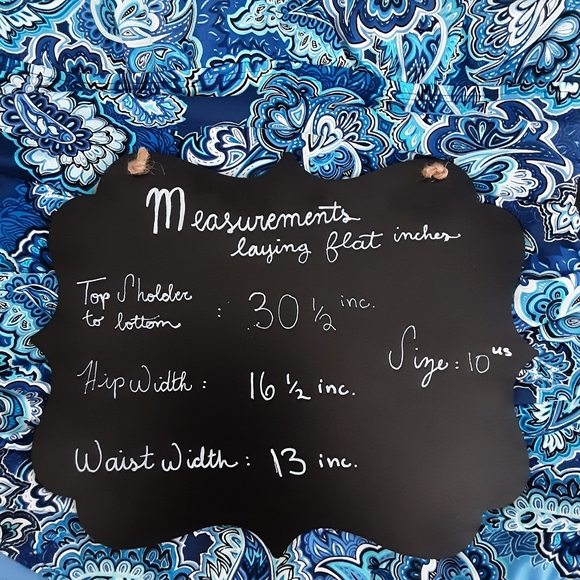 Measurements
laying flat inches
Top Sholder
to bottom : 30 1/2 inc.
Size: 10 us
Hip Width : 16 1/2 inc.
Waist Width : 13 inc.